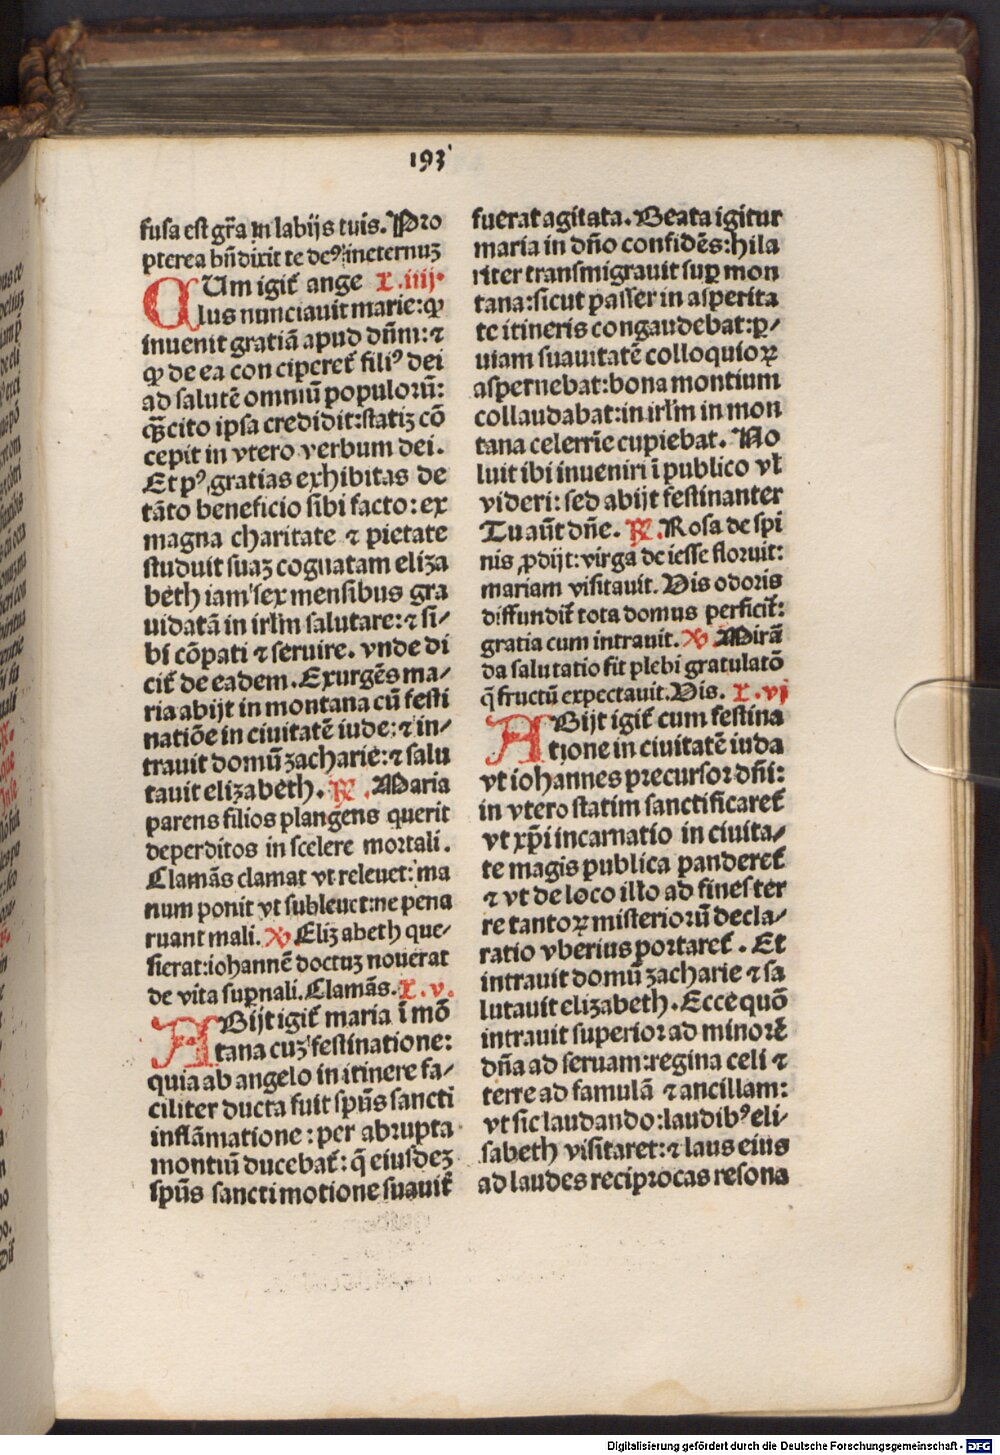 193
fusa est gr̃a in labijs tuis. Pro
pterea bñdixit te deꝰ ineternuʒ
CUm igit̃ ange L.iiij.
lus nunciauit marie: ꝙ
inuenit gratiã apud dñm: ⁊
ꝙ de ea conciperet̃ filiꝰ dei
ad salutẽ omniũ populorũ:
ꝗ̃cito ipsa credidit: statiʒ cõ
cepit in vtero verbum dei.
Et pꝰ gratias exhibitas de
tãto beneficio sibi facto: ex
magna charitate ⁊ pietate
studuit suaʒ cognatam eliza
beth iam sex mensibus gra
uidatã in irl̃m salutare: ⁊ si/
bi cõpati ⁊ seruire. vnde di
cit̃ de eadem. Exurgẽs ma/
ria abijt in montana cũ festi
natiõe in ciuitatẽ iude: ⁊ in/
trauit domũ zacharie: ⁊ salu
tauit elizabeth. ℟. Maria
parens filios plangens querit
deperditos in scelere mortali.
Clamãs clamat vt releuet: ma
num ponit vt subleuet: ne pena
ruant mali. ℣ Elizabeth que/
sierat: iohannẽ doctuʒ nouerat
de vita suꝑnali. Clamãs. L.v.
ABijt igit̃ maria ĩ mõ
tana cuʒ festinatione:
quia ab angelo in itinere fa/
ciliter ducta fuit spũs sancti
inflãmatione: per abrupta
montiũ ducebat̃: q̃ eiusdeʒ
spũs sancti motione suauit̃
fuerat agitata. Beata igitur
maria in dño confidẽs: hila
riter transmigrauit suꝑ mon
tana: sicut passer in asperita
te itineris congaudebat: ꝑ/
uiam suauitatẽ colloquioꝝ
aspernebat: bona montium
collaudabat: in irl̃m in mon
tana celerrĩe cupiebat. No
luit ibi inueniri ĩ publico vl̃
videri: sed abijt festinanter
Tu aũt dñe. ℟. Rosa de spi
nis ꝓdijt: virga de iesse floruit:
mariam visitauit. Vis odoris
diffundit̃ tota domus perficit̃:
gratia cum intrauit. ℣ Mirã
da salutatio fit plebi gratulatõ
q̃ fructũ expectauit. Vis. L.vj
ABijt igit̃ cum festina
tione in ciuitatẽ iuda
vt iohannes precursor dñi:
in vtero statim sanctificaret̃
vt xp̃i incarnatio in ciuita/
te magis publica panderet̃
⁊ vt de loco illo ad fines ter
re tantoꝝ misteriorũ decla/
ratio vberius portaret̃. Et
intrauit domũ zacharie ⁊ sa
lutauit elizabeth. Ecce quõ
intrauit superior ad minorẽ
dña ad seruam: regina celi ⁊
terre ad famulã ⁊ ancillam:
vt sic laudando: laudibꝰ eli/
sabeth visitaret: ⁊ laus eius
ad laudes reciprocas resona
Digitalisierung gefördert durch die Deutsche Forschungsgemeinschaft - DFG